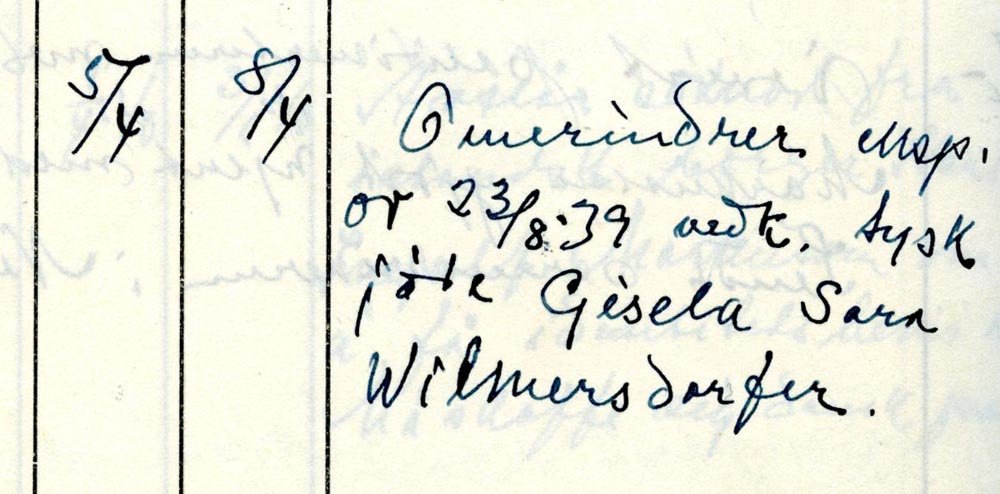 5/4 8/4 Omerindrer eksp.
av 23/8-39 vedk. tysk
jøde Gisela Sara
Wilmersdorfer.